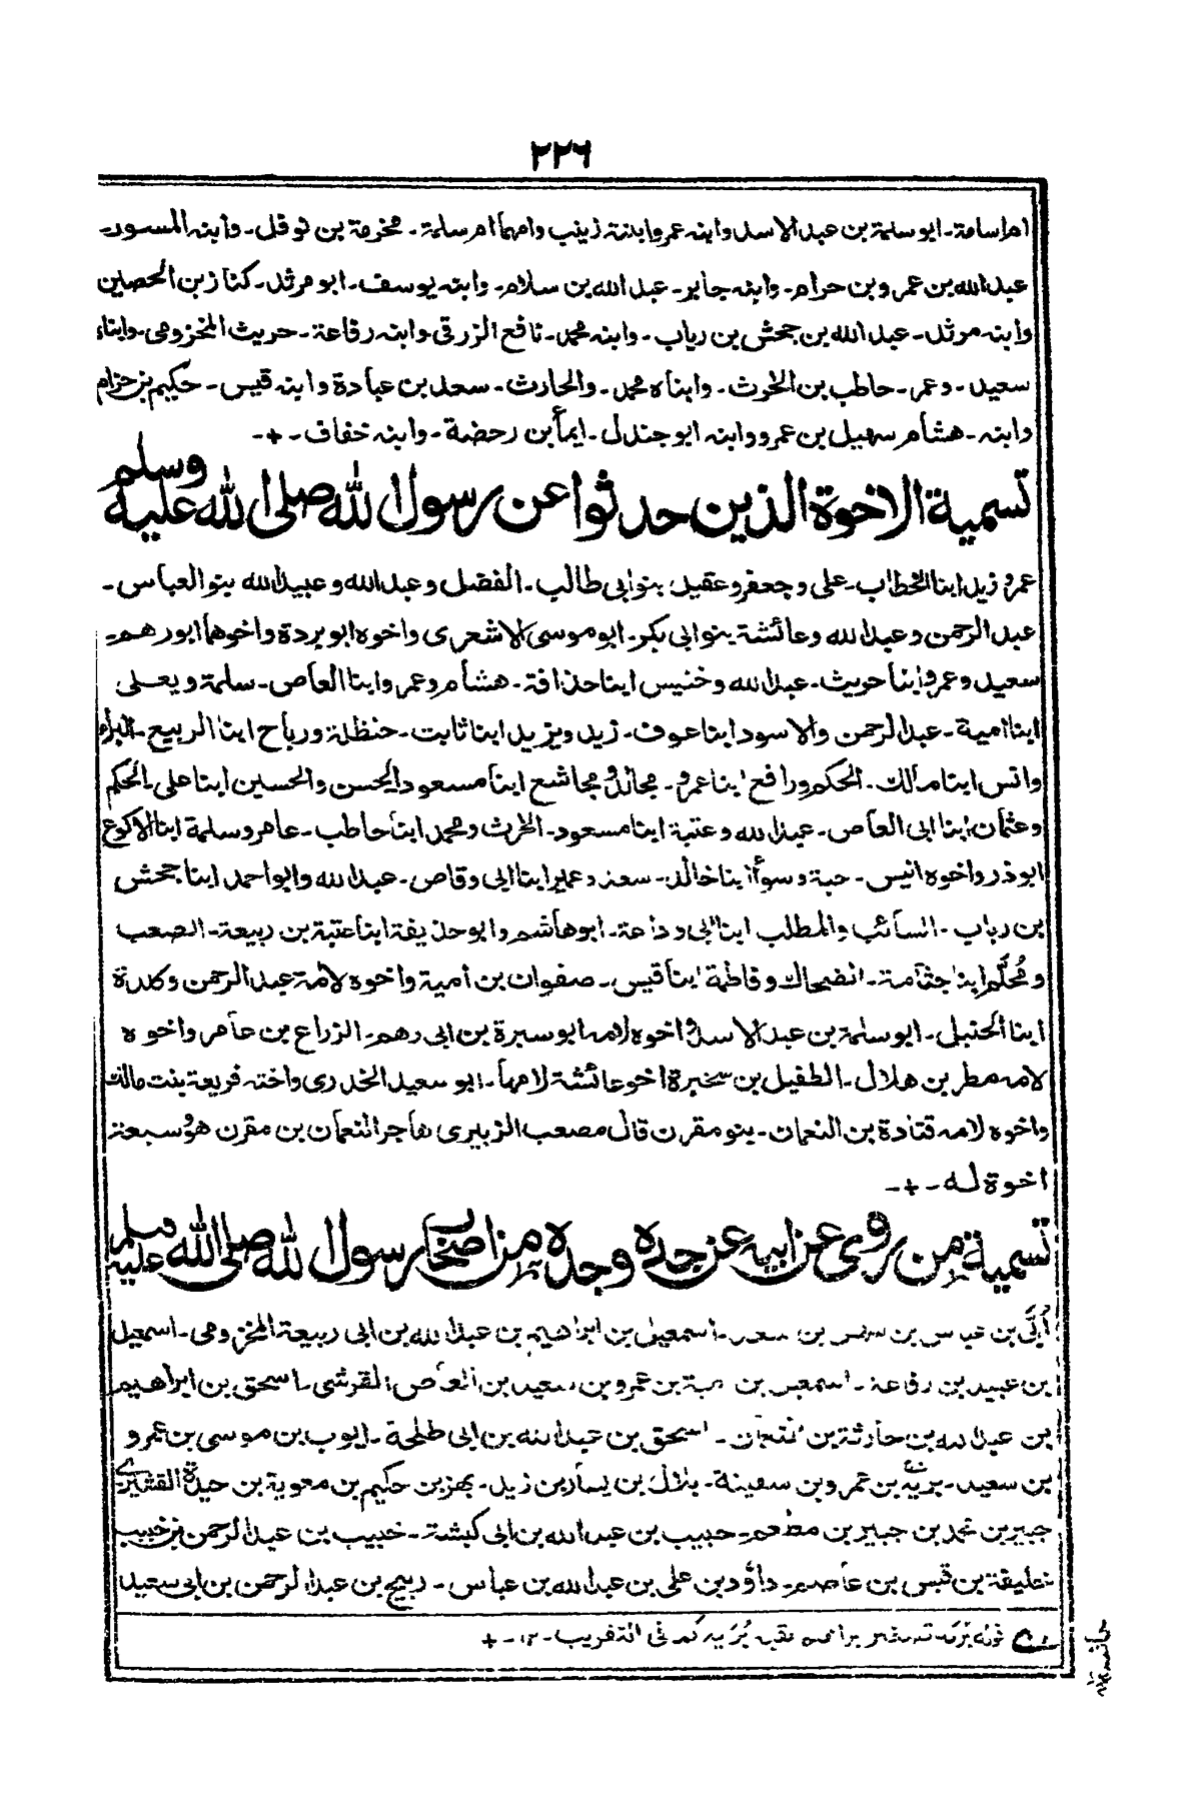 ٢٢٦
ام اسامة ـ ابو سلمة بن عبد الاسد وابنه عمر وابنته زينب وامهما ام سلمة ـ مخرمة بن نوفل ـ وابنه المسور ـ
عبد الله بن عمرو بن حرام ـ وابنه جابر ـ عبد الله بن سلام ـ وابنه يوسف ـ ابو مرثد ـ كناز بن الحصين
وابنه مرثد ـ عبد الله بن جحش بن رياب ـ وابنه محمد ـ نافع الزرقى وابنه رفاعة ـ حريث المخزومى ـ وابناه
سعيد ـ وعمر ـ حاطب بن الحرث ـ وابناه محمد ـ والحارث ـ سعد بن عبادة وابنه قيس ـ حكيم بن حزام
وابنه ـ هشام سهيل بن عمرو وابنه ابو جندل ـ ايمأ بن رحضة ـ وابنه خفاف ـ + ـ
تسمية الاخوة الذين حدثوا عن رسول الله صلى الله عليه وسلم
عمر و زيد ابنا الخطاب ـ على وجعفر وعقيل بنو ابى طالب ـ الفضل وعبد الله وعبيد الله بنو العباس ـ
عبد الرحمن وعبد الله وعائشة بنو ابى بكر ـ ابو موسى الاشعرى واخوه ابو بردة واخوهما ابو رهم ـ
سعيد وعمرو ابنا حويث ـ عبد الله وخنيس ابنا حذافة ـ هشام وعمر وابنا العاص ـ سلمة ويعلى
ابنا امية ـ عبد الرحمن والاسود ابنا عوف ـ زيد ويزيد ابنا ثابت ـ حنظلة ورباح ابنا الربيع ـ البراء
وانس ابنا مالك ـ الحكم ورافع ابنا عمرو ـ مجالد ومجاشع ابنا مسعود الحسن والحسين ابنا على ـ الحكم
وعثمان ابنا ابى العاص ـ عبد الله وعتبة ابنا مسعود ـ الحرث ومحمد ابنا حاطب ـ عامر وسلمة ابنا الاكوع
ابو ذر واخوه انيس ـ حبة وسوأ ابنا خالد ـ سعد وعمير ابنا ابى وقاص ـ عبد الله وابو احمد ابنا جحش
بن رباب ـ السائب والمطلب ابنا ابى وداعة ـ ابو هاشم وابو حذيفة ابنا عتبة بن ربيعة ـ الصعب
ومُحلَّم ابنا جثامة ـ الضحاك وفاطمة ابنا قيس ـ صفوان بن امية واخوه لامه عبد الرحمن وكلدة
ابنا الحنبلى ـ ابو سلمة بن عبد الاسد واخوه لامه ابو سبرة بن ابى رهم ـ الزراع بن عامر واخوه
لامه مطر بن هلال ـ الطفيل بن سخبرة اخو عائشة لامها ـ ابو سعيد الخدرى واخته فريعة بنت مالك
واخوه لامه قتادة بن النعمان ـ بنو مقرن قال مصعب الزبيرى هاجر النعمان بن مقرن هو وسبعة
اخوة له ـ + ـ
تسمية من روى عن ابيه عن جده وجده من اصحاب رسول الله صلى الله عليه وسلم
أُبَىّ بن عباس بن سهل بن سعد ـ اسمعيل بن ابراهيم بن عبد الله بن ابى ربيعة المخزومى ـ اسمعيل
بن عبيد بن رفاعة ـ اسمعيل بن امية بن عمرو بن سعيد بن العاص القرشى ـ اسحق بن ابراهيم
بن عبد الله بن حارثة بن النعمان ـ اسحق بن عبد الله بن ابى طلحة ـ ايوب بن موسى بن عمرو
بن سعيد ـ بريه بن عمرو بن سفينة ـ بلال بن يسار بن زيد ـ بهز بن حكيم بن معوية بن حيدة القشيرى
جبير بن محمد بن جبير بن مطعم ـ حبيب بن عبد الله بن ابى كبشة ـ خبيب بن عبد الرحمن بن خبيب
خليفة بن قيس بن عاصم ـ داؤد بن على بن عبد الله بن عباس ـ ربيح بن عبد الرحمن بن ابى سعيد
قوله بُرَيه تصغير ابراهيم لقبه بُرَيه كما فى التقريب ـ ١٢ ـ +